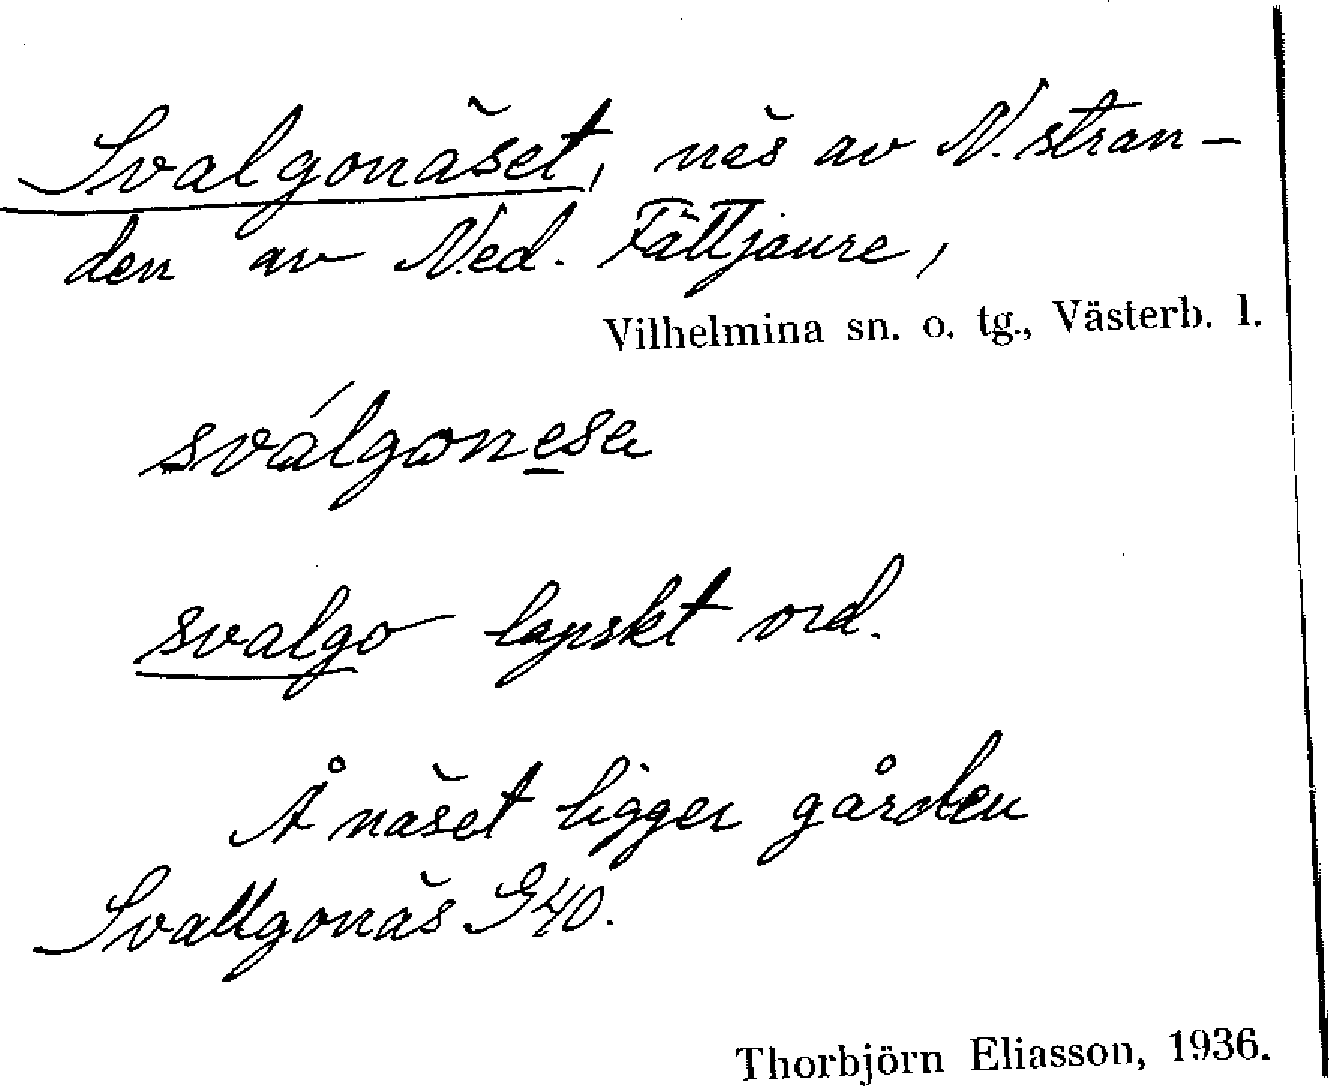 Svalgonäset, näs av N. stran-
den av Ned. Fättjaure,
Vilhelmina sn. o. tg., Västerb. l.
sválgonese
svalgo lapskt ord.
Å näset ligger gården
Svallgonäs G40.
Thorbjörn Eliasson, 1936.